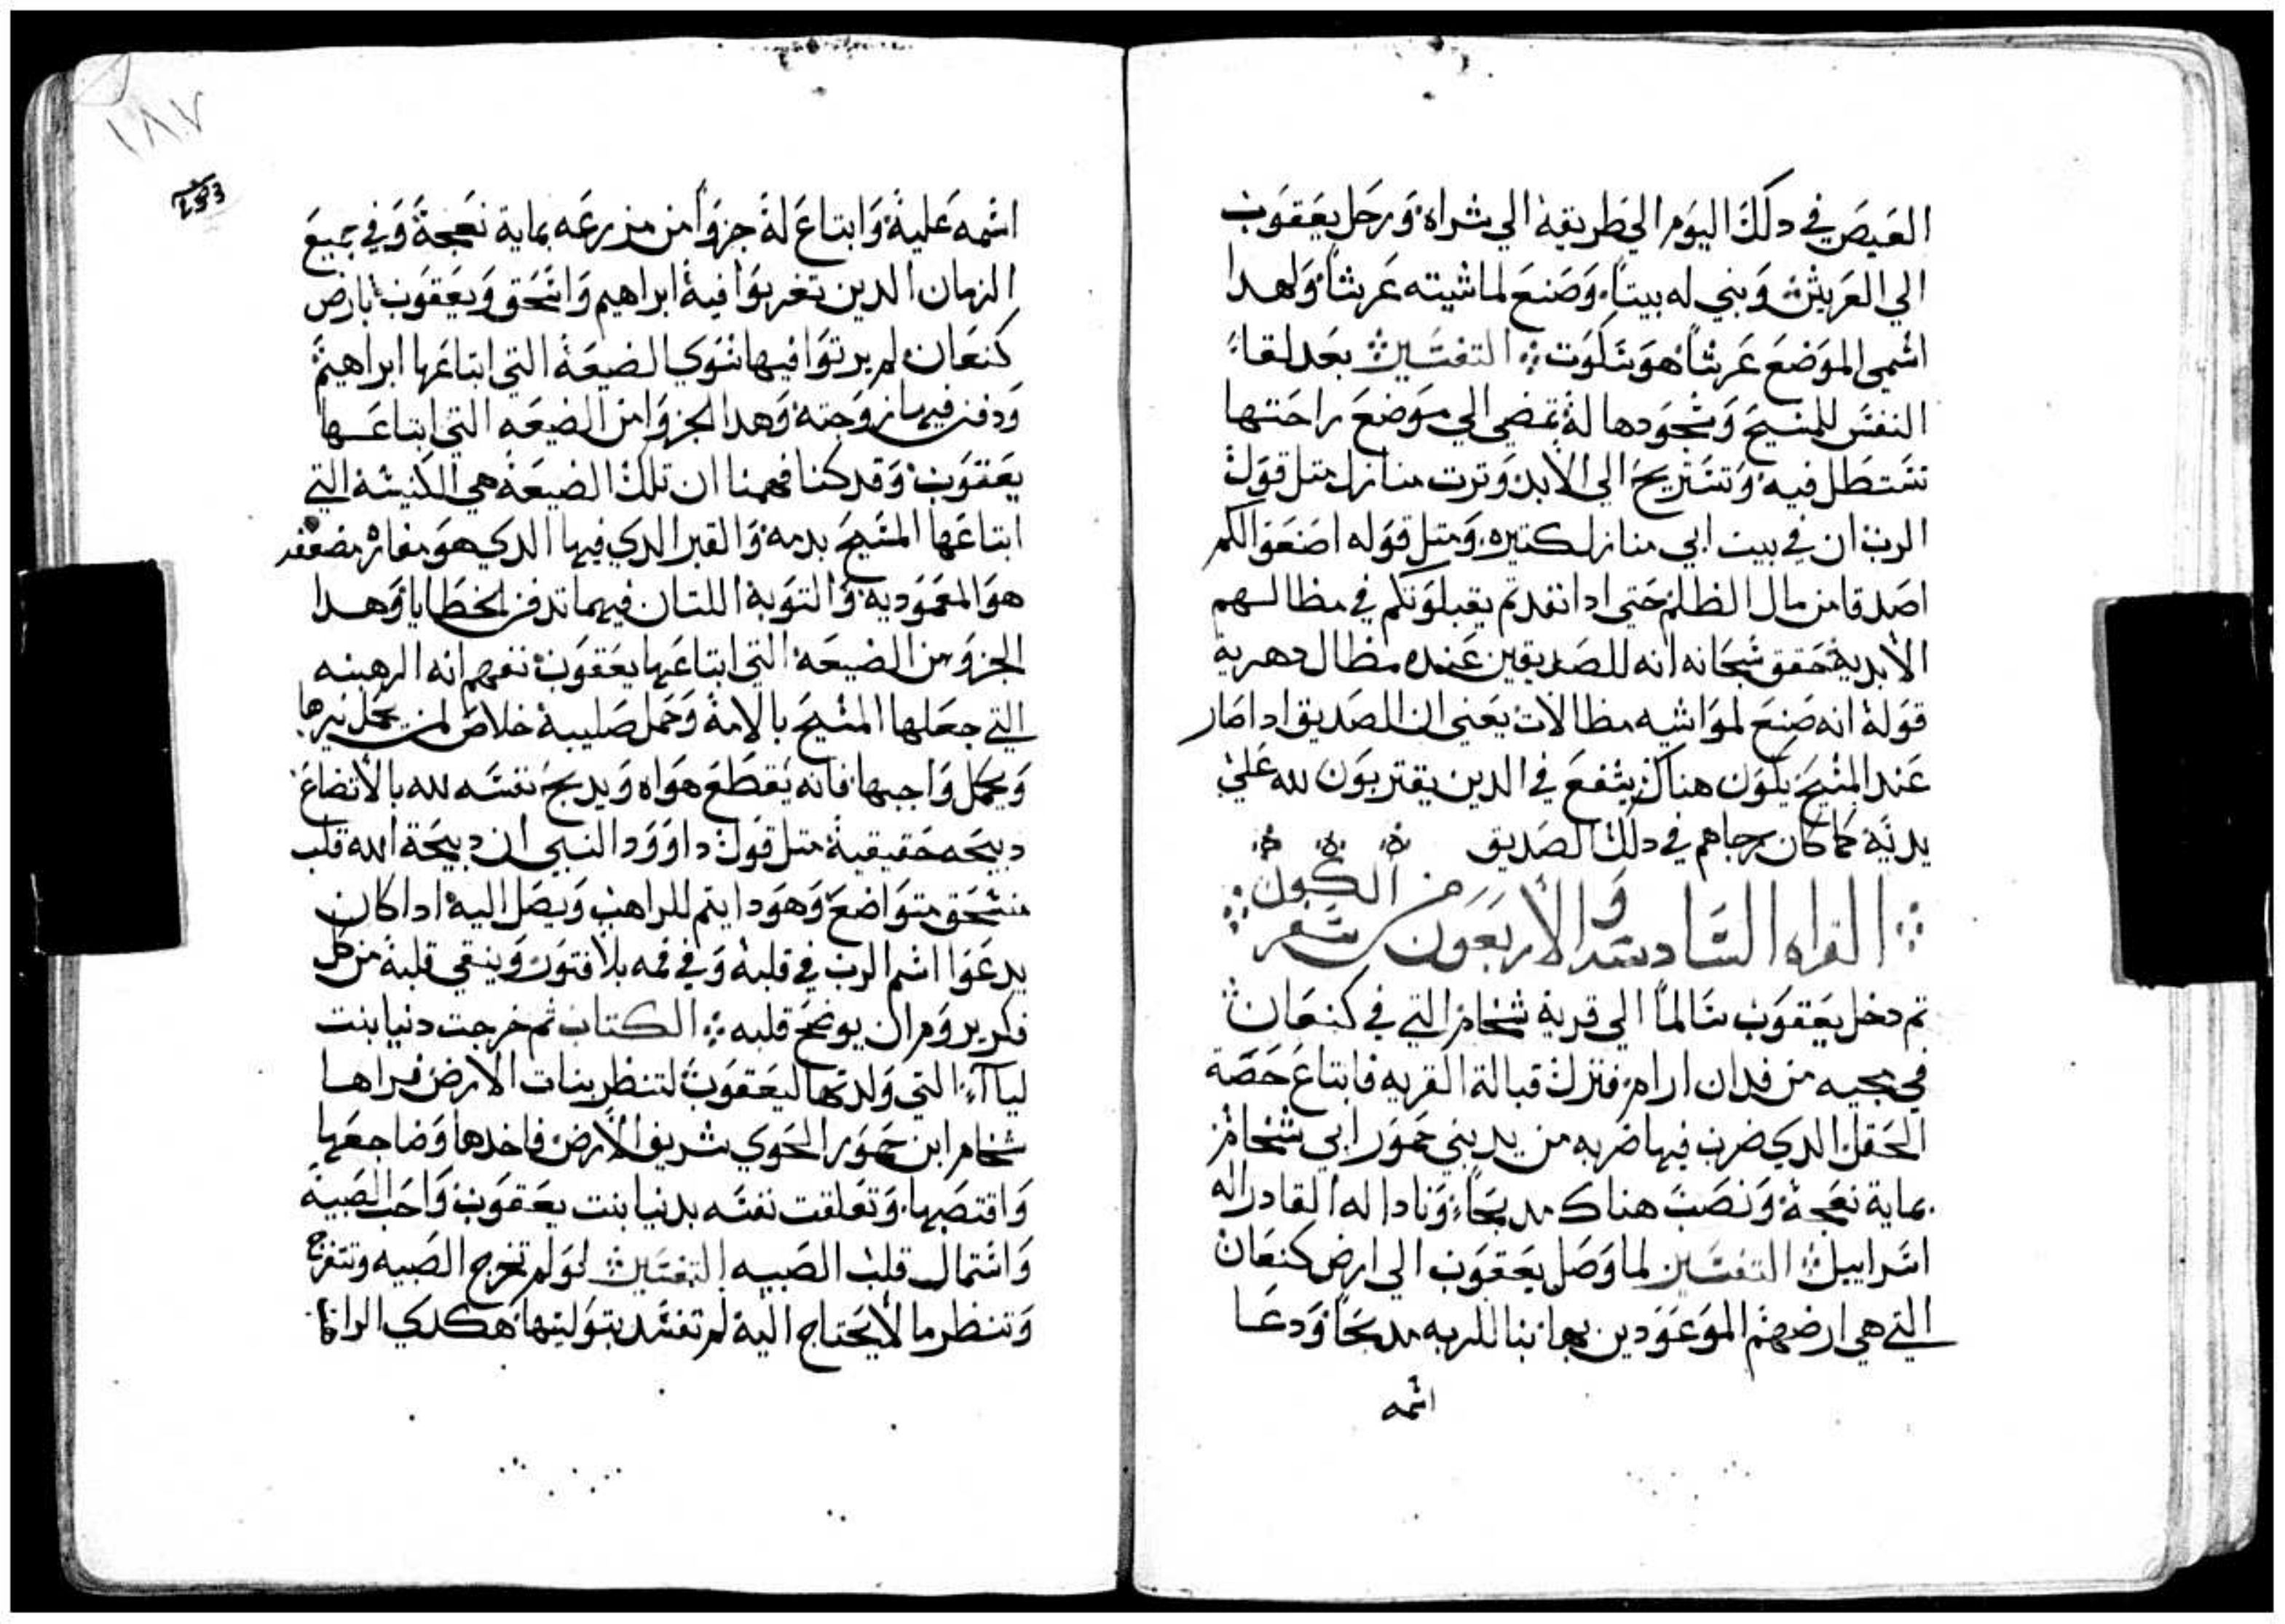 العيص في دلك اليوم الي طريقه الي شراه ورحل يعقوب
الي العريش وبني له بيتا وصنع لماشيته عرشا ولهدا
اسمي الموضع عرشا هو سكوت التفسير بعد لقاء
النفس للمسيح وسجودها له تمضي الي موضع راحتها
تستظل فيه وتستريح الي الابد وترت منازل متل قول
الرب ان في بيت ابي منازل كتيره ومتل قوله اصنعوا لكم
اصدقا من مال الظلم حتى ادا نفدتم يقبلونكم في مظالهم
الابديه حقق سبحانه انه للصديقين عنده مظال دهرية
قوله انه صنع لمواشيه مظالات يعني ان الصديق ادا صار
عند المسيح يكون هناك يشفع في الدين يقتربون لله علي
يديه كما كان رجاهم في دلك الصديق
القراه السادسه والاربعون من سفر التكوين
تم دخل يعقوب سالما الي قرية شخام التي في كنعان
في مجيه من فدان ارام فنزل قبالة القريه فابتاع حصة
الحقل الدي ضرب فيها ضربه من يد بني حمور ابي شخام
بماية نعجة ونصب هناك مدبحا ونادا له القادر اله
اسراييل التفسير لما وصل يعقوب الي ارض كنعان
التي هي ارضهم الموعودين بها بنا للربه مدبحا ودعا
اسمه
١٨٧
اسمه عليه وابتاع له جزوا من مزرعه بماية نعجة وفي جميع
الزمان الدين تغربوا فيه ابراهيم واسحق ويعقوب بارض
كنعان لم يرتوا فيها سوي الضيعة التي ابتاعها ابراهيم
ودفن فيها زوجته وهدا الجزو من الضيعه التي ابتاعها
يعقوب وقد كنا فهمنا ان تلك الضيعة هي الكنيسه التي
ابتاعها المسيح بدمه والقبر الدي فيها الدي هو مغاره مضعفه
هو المعمودية والتوبة اللتان فيهما تدفن الخطايا وهدا
الجزو من الضيعة التي ابتاعها يعقوب نفهم انه الرهبنه
التي جعلها المسيح بالامه وحمل صليبه خلاص لمن يحمل نيرها
ويحمل واجبها فانه يقطع هواه ويدبح نفسه لله بالاتضاع
دبيحه حقيقية متل قول داوود النبي ان دبيحة الله قلب
منسحق متواضع وهو دايتم للراهب ويصل اليه ادا كان
يدعوا اسم الرب في قلبه وفي فمه بلا فتور وينقي قلبه من كل
فكر يروم ان يوسخ قلبه الكتاب تم خرجت دنيا بنت
ليا التي ولدتها ليعقوب لتنظر بنات الارض فراها
شخام ابن حمور الحوي شريف الارض فاخدها وضاجعها
واقتصبها وتعلقت نفسه بدنيا بنت يعقوب واحب الصبية
واستمال قلب الصبيه التفسير لو لم تخرج الصبيه وتتفرج
وتنظر ما لا يحتاج اليه لم تفسد بتوليتها هكدي الراها